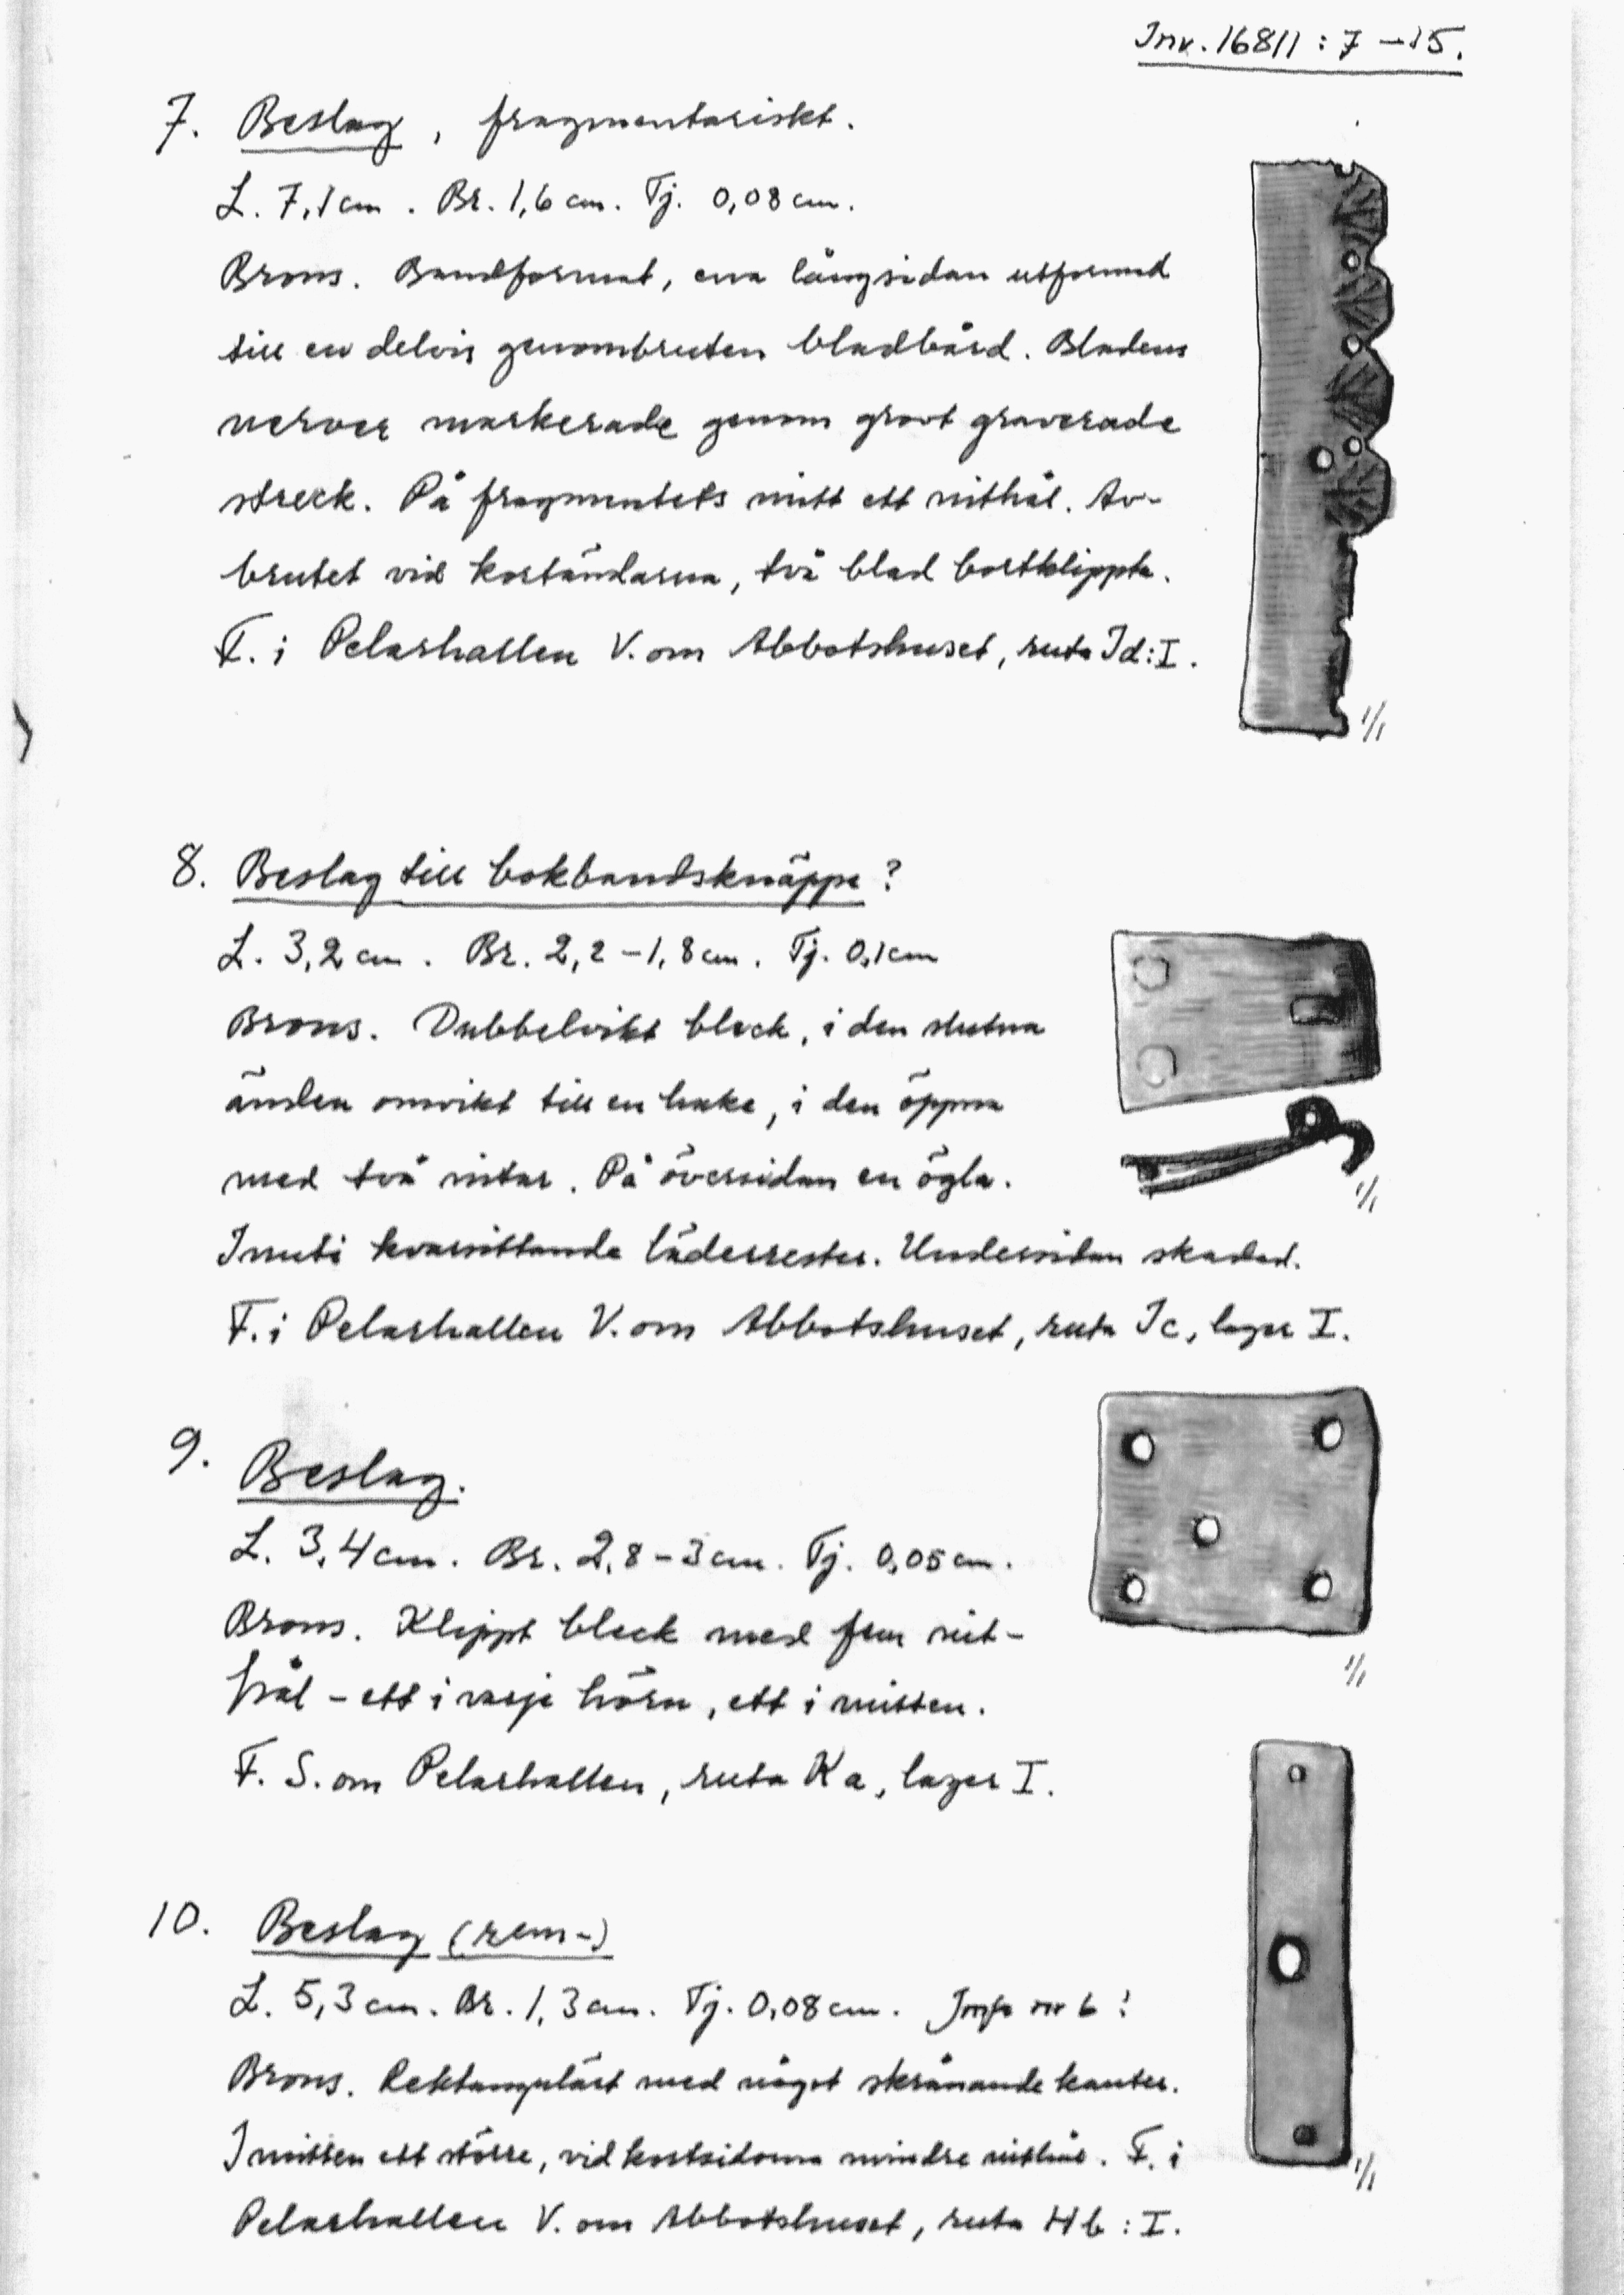 Inv. 16811 : 7 – 15.
7. Beslag, fragmentariskt.
L. 7,1 cm. Br. 1,6 cm. Tj. 0,08 cm.
Brons. Bandformat, ena långsidan utformad
till en delvis genombruten bladbård. Bladens
nerver markerade genom grovt graverade
streck. På fragmentets mitt ett nithål. Av-
brutet vid kortändarna, två blad bortklippta.
F. i Pelarhallen V. om Abbotshuset, ruta Id:I.
1/1
8. Beslag till bokbandsknäppe?
L. 3,2 cm. Br. 2,2 – 1,8 cm. Tj. 0,1 cm
Brons. Dubbelvikt bleck, i den slutna
änden omvikt till en hake, i den öppna
med två nitar. På översidan en ögla.
1/1
Inuti kvarsittande läderrester. Undersidan skadad.
F. i Pelarhallen V. om Abbotshuset, ruta Ic, lager I.
9. Beslag.
L. 3,4 cm. Br. 2,8 – 3 cm. Tj. 0,05 cm.
Brons. Klippt bleck med fem nit-
hål – ett i varje hörn, ett i mitten.
1/1
F. S. om Pelarhallen, ruta Ka, lager I.
10. Beslag (rem-)
L. 5,3 cm. Br. 1,3 cm. Tj. 0,08 cm. Jmfr nr 6!
Brons. Rektangulärt med något skrånande kanter.
I mitten ett större, vid kortsidorna mindre nithål. F. i
1/1
Pelarhallen V. om Abbotshuset, ruta Hb : I.